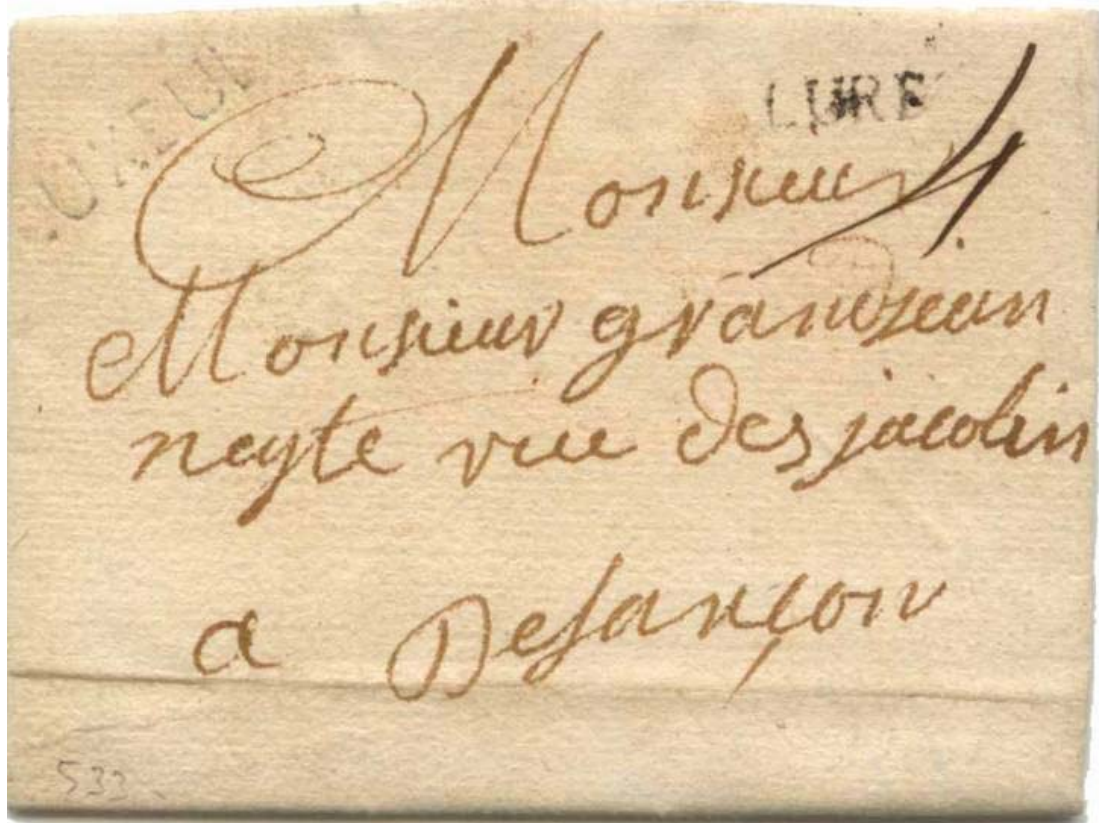 LURE
4
Monsieur
Monsieur grandjean
negte rue des jacobin
a Besançon
533